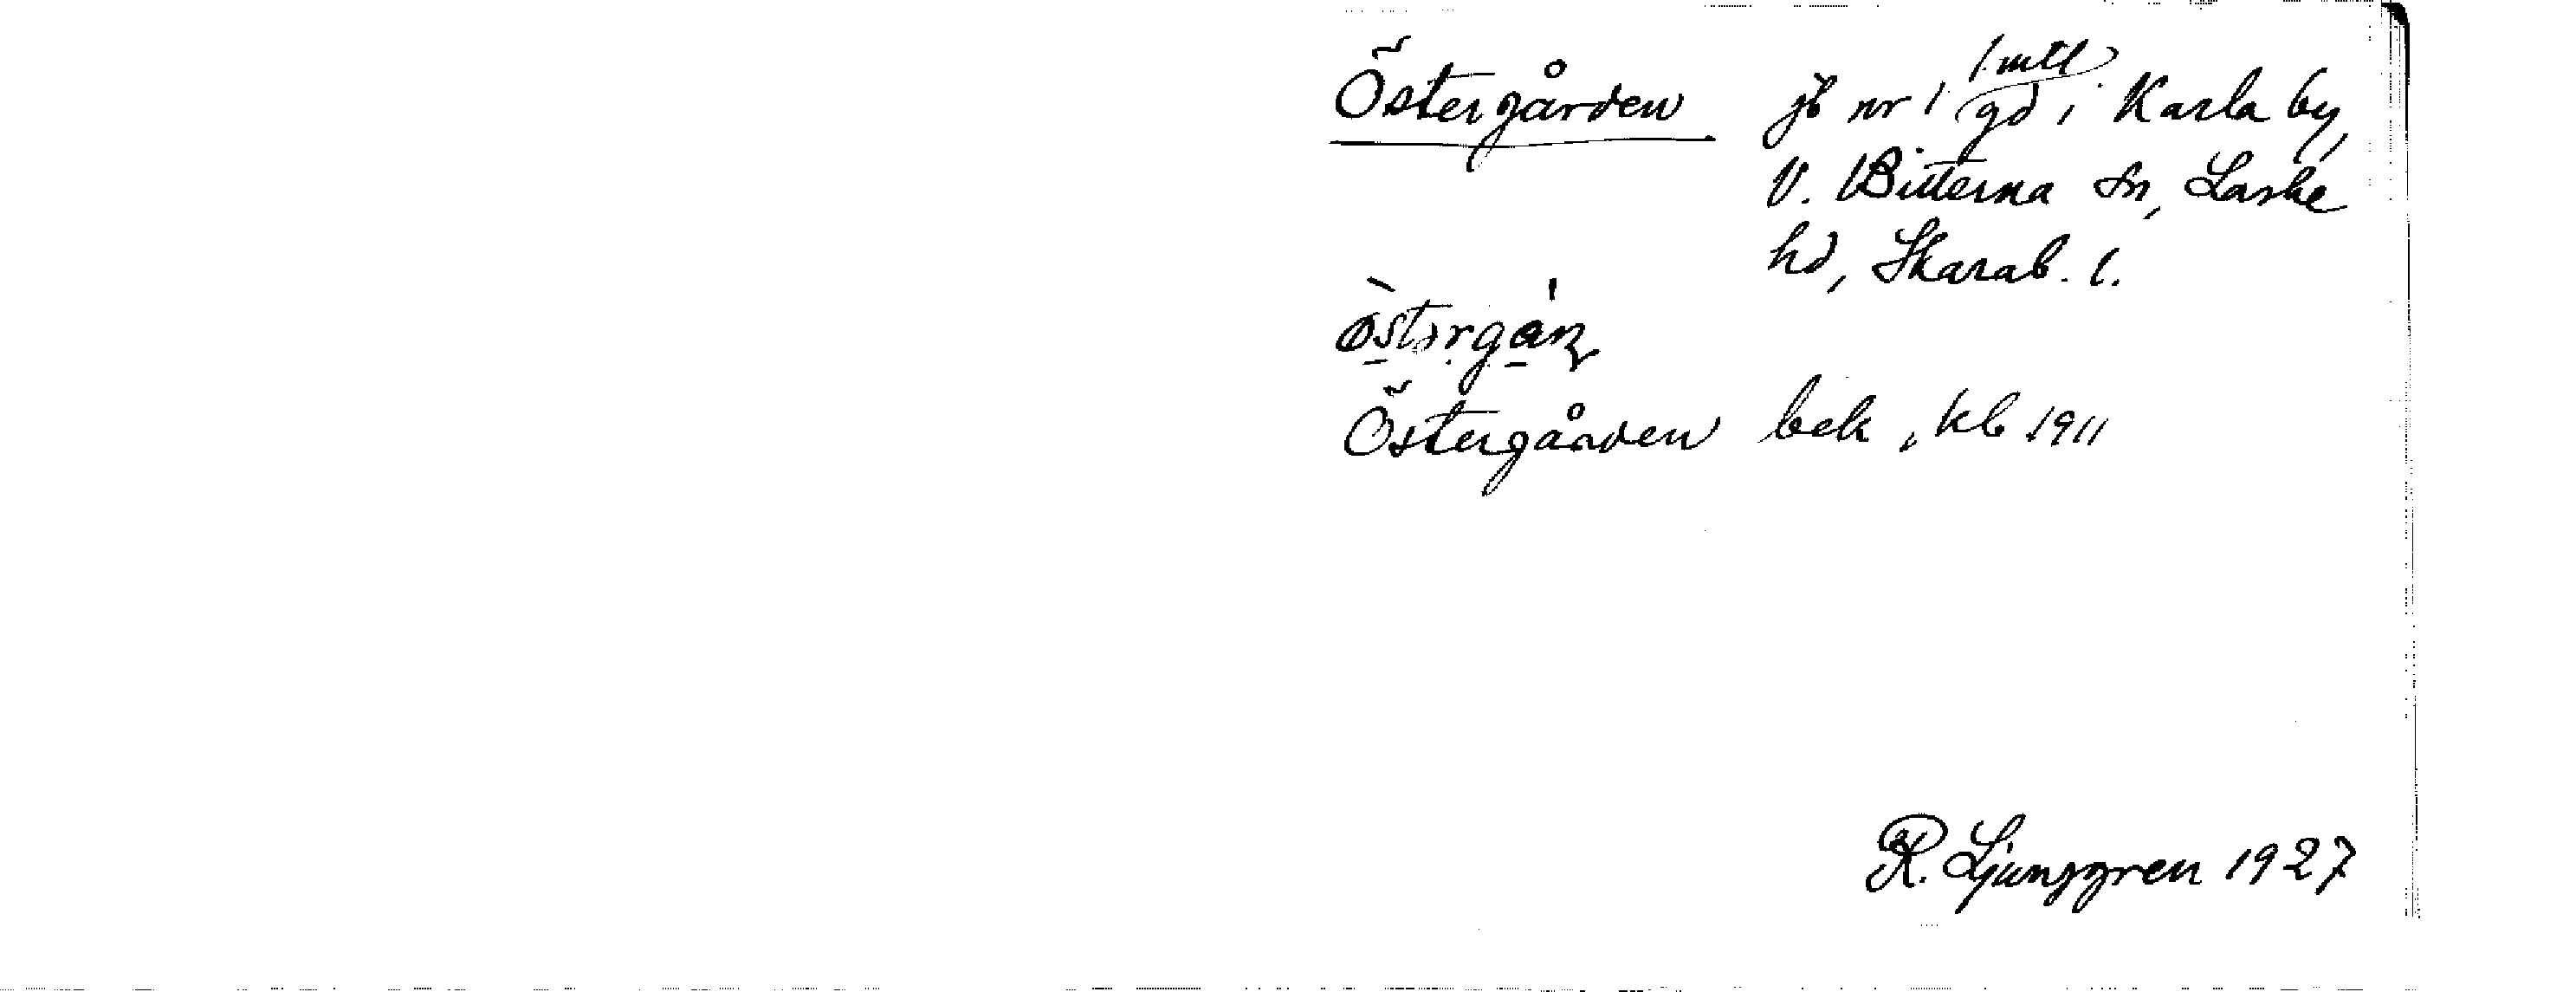 Östergården jb nr 1 1 mtl gd i Karla by,
V. Bitterna sn, Laske
hd, Skarab. l.
Östergården bek, kb 1911
R. Ljunggren 1927